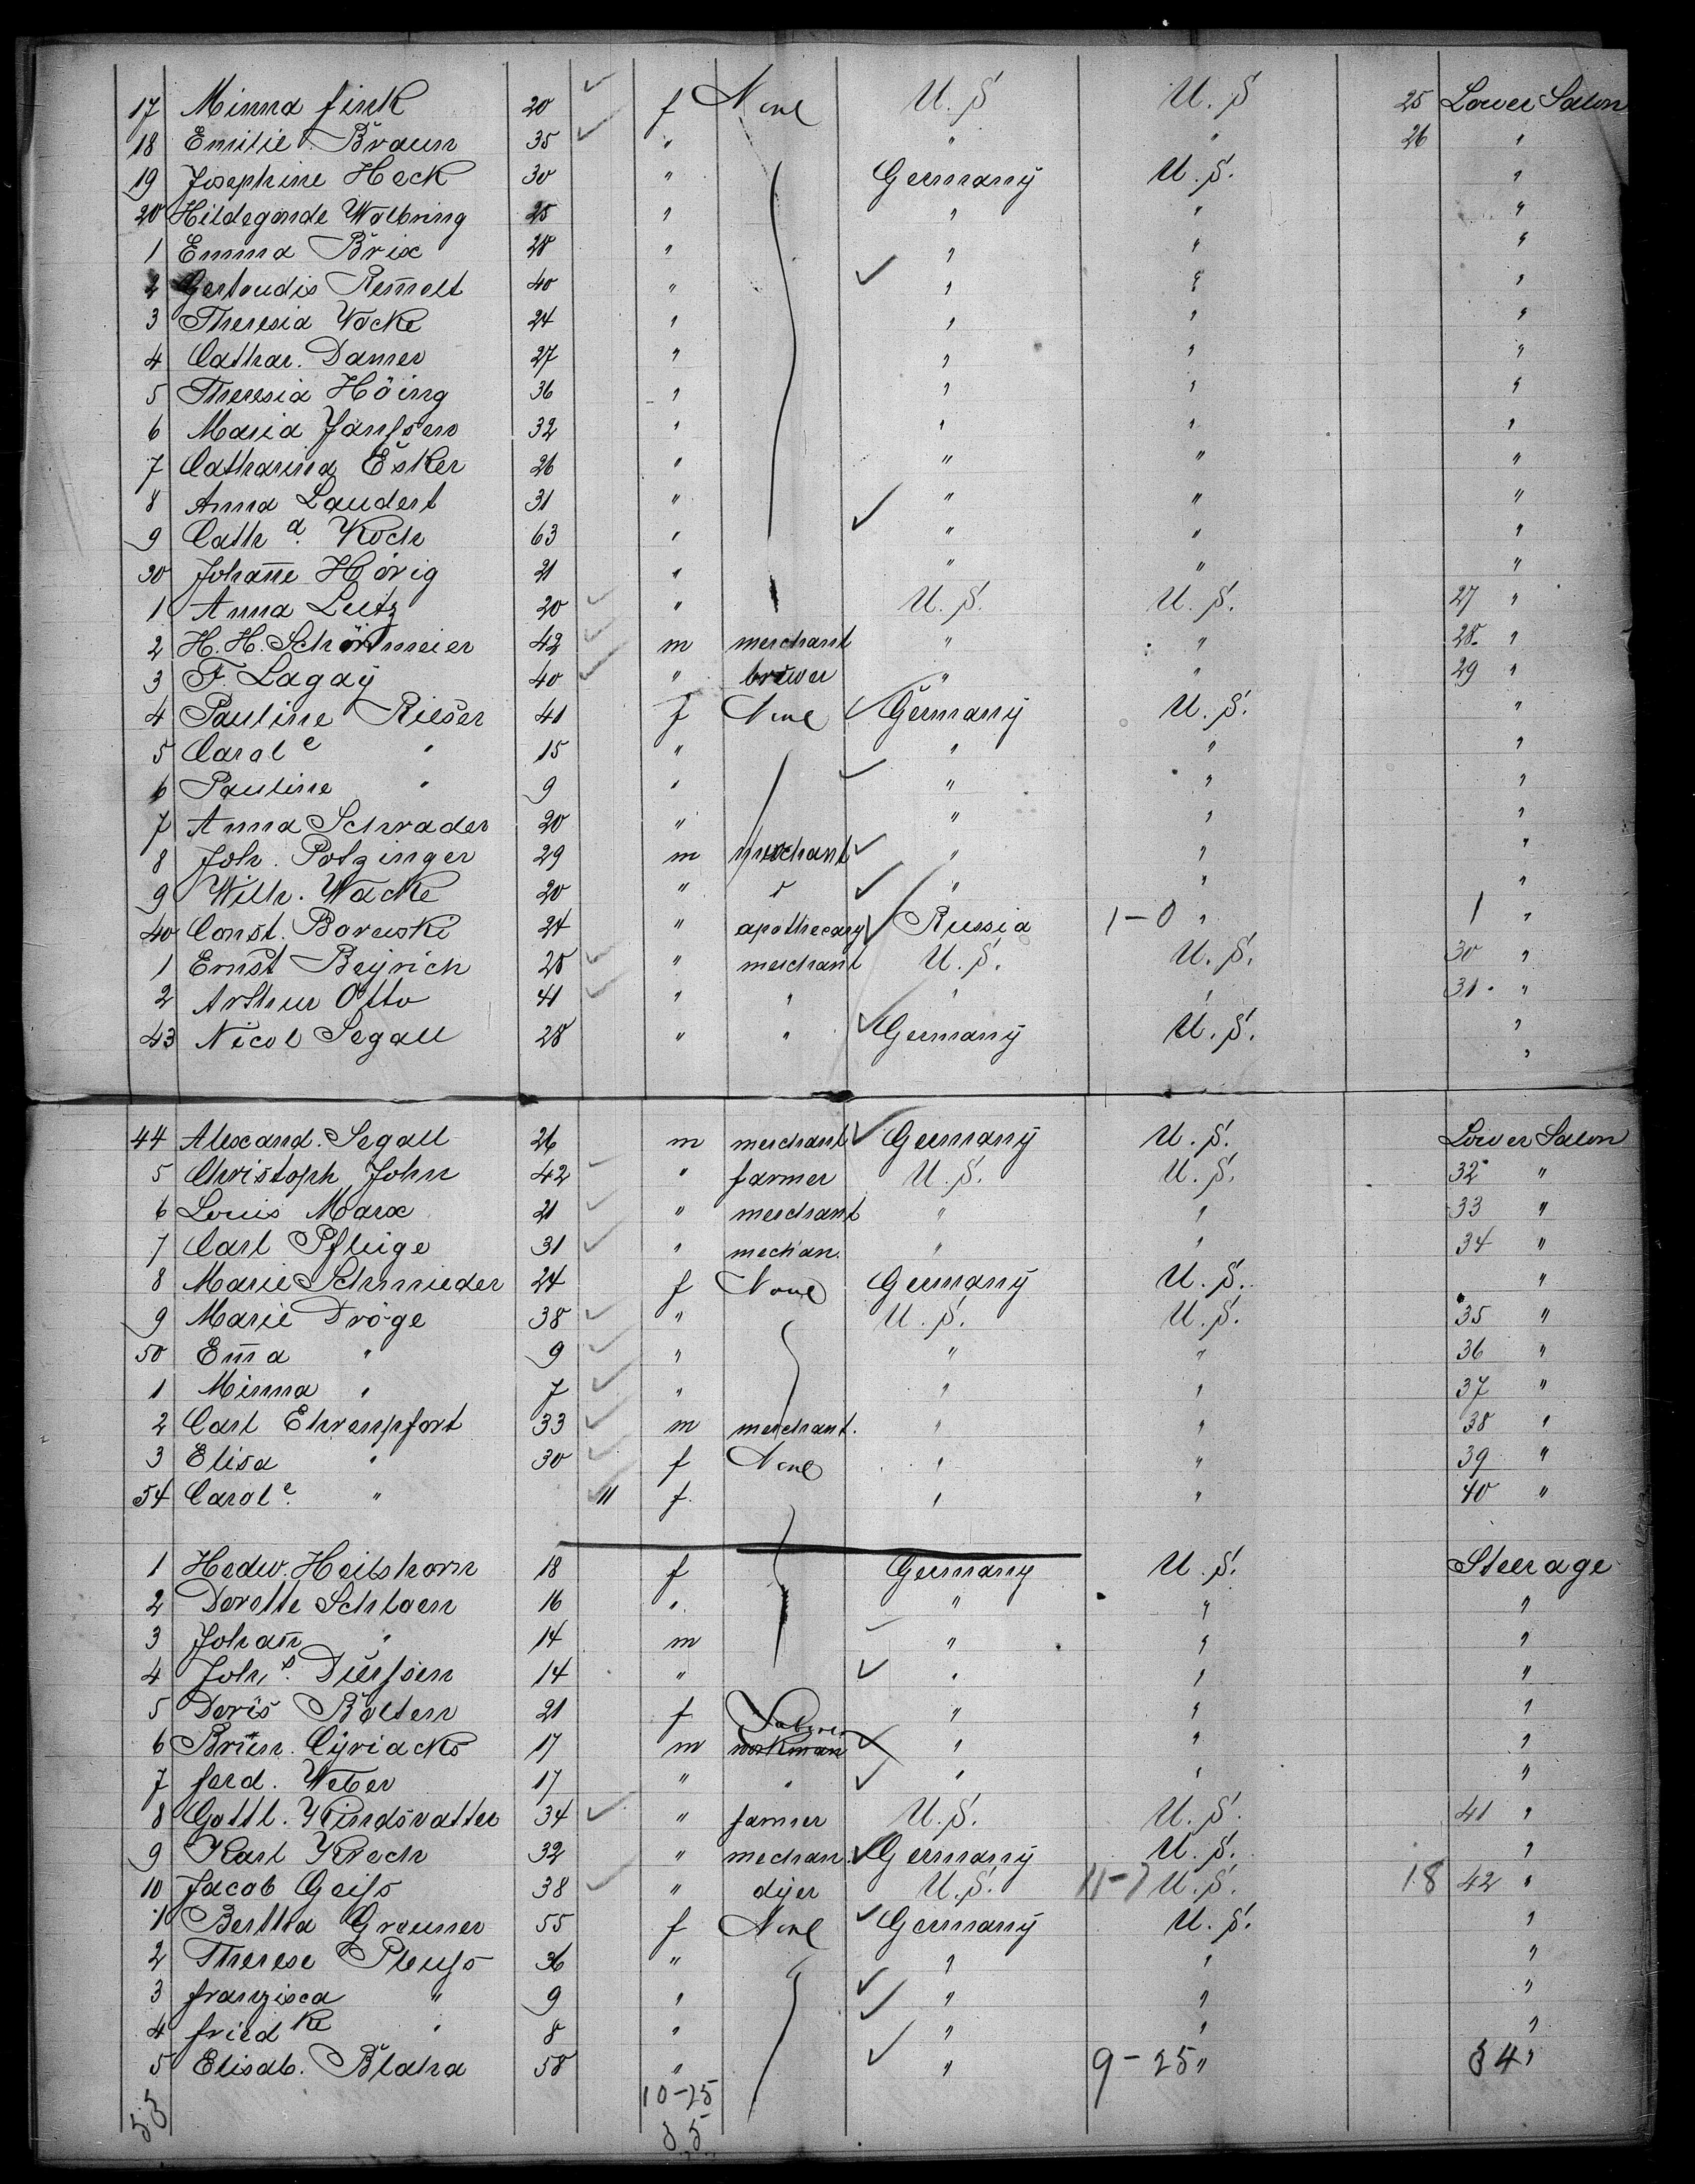 17 Minna Fink 20 f None U.S U.S 25 Lower Salon
18 Emilie Braun 35 " " " 26 "
19 Josephine Heck 30 " Germany U.S. "
20 Hildegarde Wolbring 25 " " " "
1 Emma Brix 28 " " " "
2 Gertrudis Rem̅elt 40 " " " "
3 Theresia Wocke 24 " " " "
4 Cathar. Damer 27 " " " "
5 Theresia Höing 36 " " " "
6 Maria Janssen 32 " " " "
7 Catharina Esker 26 " " " "
8 Anna Laudert 31 " " " "
9 Cath a. Koch 63 " " " "
30 Johan̅e Hörig 21 " " " "
1 Anna Lutz 20 " U.S. U.S. 27 "
2 H. H. Schörtmeier 42 m merchant " " 28. "
3 F. Lagay 40 " brewer " " 29 "
4 Pauline Rieser 41 f None Germany U.S. "
5 Carol e " 15 " " " "
6 Pauline " 9 " " " "
7 Anna Schrader 20 " " " "
8 Joh. Potzinger 29 m merchant " " "
9 Wilh. Wacke 20 " " " " "
40 Const. Boreuski 24 " apothecary Russia 1-0 " 1 "
1 Ernst Beyrich 28 " merchant U.S. U.S. 30 "
2 Arthur Otto 41 " " " " 31. "
43 Nicol Segall 28 " " Germany U.S. "
"
44 Alexand. Segall 26 m merchant Germany U.S. Lower Salon
5 Christoph John 42 " farmer U.S. U.S. 32 "
6 Louis Marx 21 " merchant " " 33 "
7 Carl Pfluge 31 " mechan. " " 34 "
8 Marie Schmieder 24 f None Germany U.S. "
9 Marie Dröge 38 " U.S. U.S. 35 "
50 Em̅a " 9 " " " 36 "
1 Minna " 7 " " " 37 "
2 Carl Ehrenpfort 33 m merchant. " " 38 "
3 Elisa " 30 f None " " 39 "
54 Carol e. " 11 f " " 40 "
1 Hedw. Heilshorn 18 f Germany U.S. Steerage
2 Dorothe Schloen 16 " " " "
3 Johan̅ " 14 m " " "
4 Joh. s. Dierssen 14 " " " "
5 Doris Bolten 21 f " " "
6 Brün. Cyriacks 17 m Laborer workman " " "
7 Ferd. Weber 17 " " " " "
8 Gottl. Kindsvatter 34 " farmer U.S. U.S. 41 "
9 Karl Krech 32 " mechan. Germany U.S. "
10 Jacob Geiss 38 " dyer U.S. 11-7 U.S. 18 42 "
1 Bertha Greuner 55 f None Germany U.S. "
2 Therese Pleuss 36 " " " "
3 Franzisca " 9 " " " "
4 Fried ke " 8 " " " "
5 Elisab. Blaha 58 " " 9-25 " 34 "
53 10-25